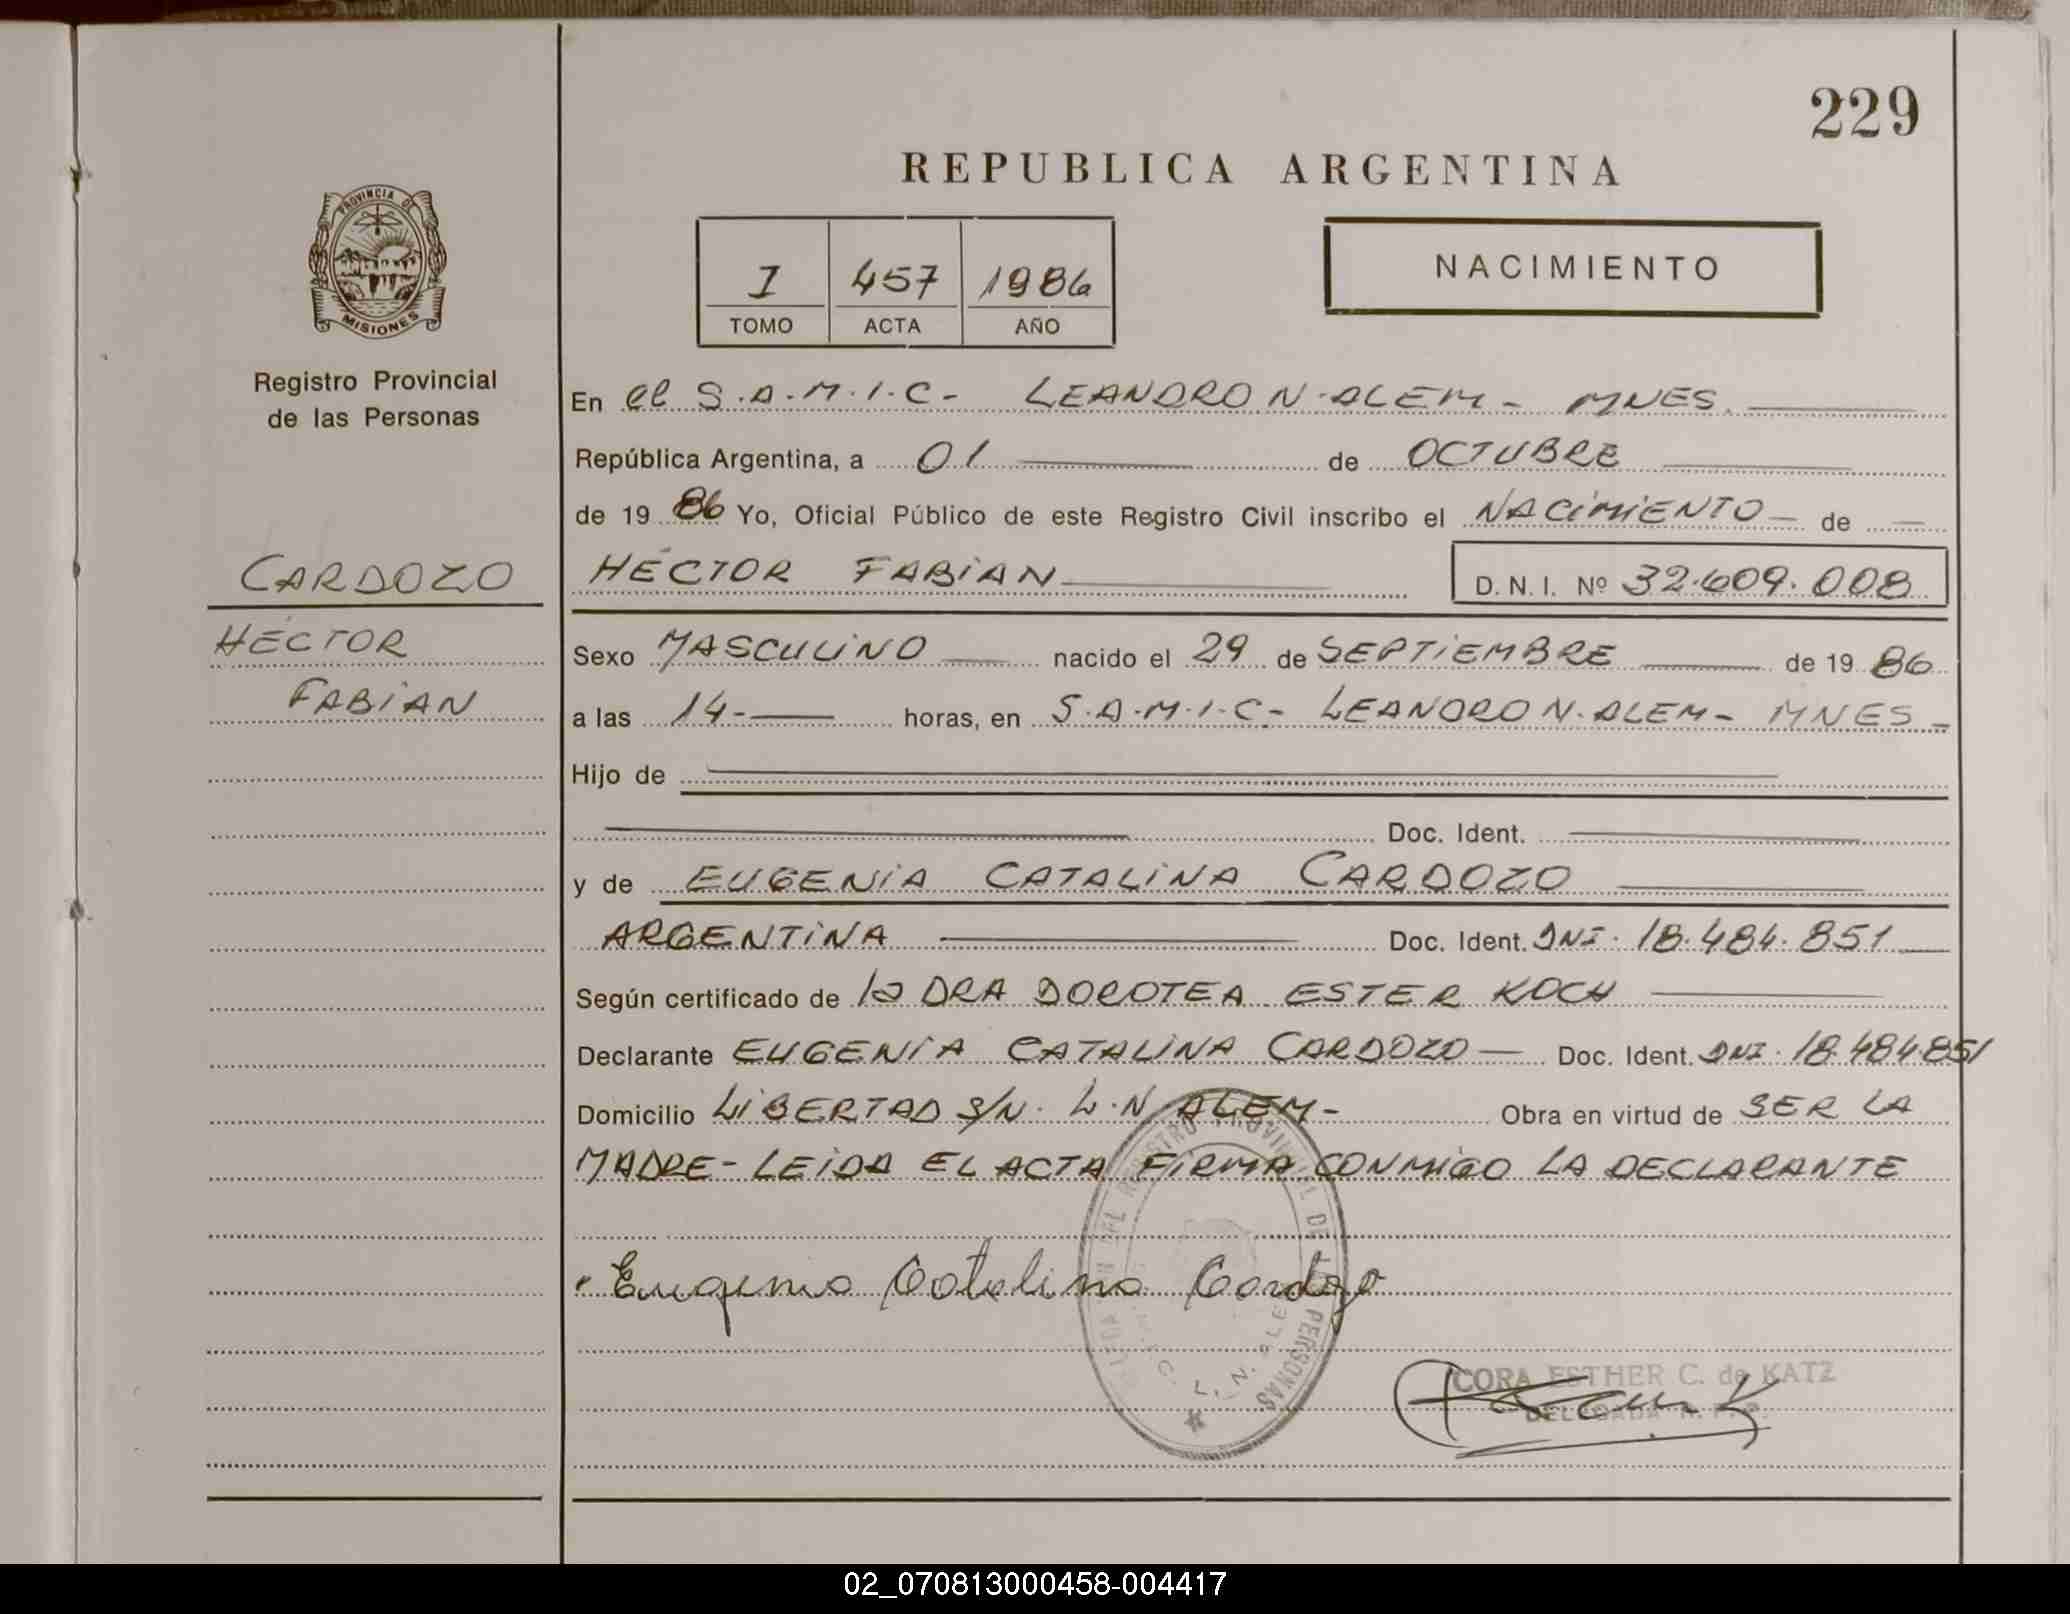 229
REPUBLICA ARGENTINA
I 457 1986
TOMO ACTA AÑO
NACIMIENTO
PROVINCIA DE
MISIONES
Registro Provincial
de las Personas
CARDOZO
HÉCTOR
FABIAN
En el S.A.M.I.C- LEANDRO N. ALEM- MNES.
República Argentina, a 01 de OCTUBRE
de 1986 Yo, Oficial Público de este Registro Civil inscribo el NACIMIENTO- de —
HÉCTOR FABIAN D. N. I. Nº 32.609.008
Sexo MASCULINO nacido el 29 de SEPTIEMBRE de 1986
a las 14- horas, en S.A.M.I.C- LEANDRO N. ALEM- MNES-
Hijo de
Doc. Ident.
y de EUGENIA CATALINA CARDOZO
ARGENTINA Doc. Ident. DNI. 18.484.851
Según certificado de la DRA DOROTEA ESTER KOCH
Declarante EUGENIA CATALINA CARDOZO — Doc. Ident. DNI. 18.484.851
Domicilio LIBERTAD S/N. L.N. ALEM- Obra en virtud de SER LA
MADRE- LEIDA EL ACTA FIRMA CONMIGO LA DECLARANTE
Eugenia Catalina Cardozo
DEL REGISTRO PROVINCIAL DE LAS PERSONAS
L. N. ALEM
CORA ESTHER C. de KATZ
DELEGADA R. P. P.
02_070813000458-004417